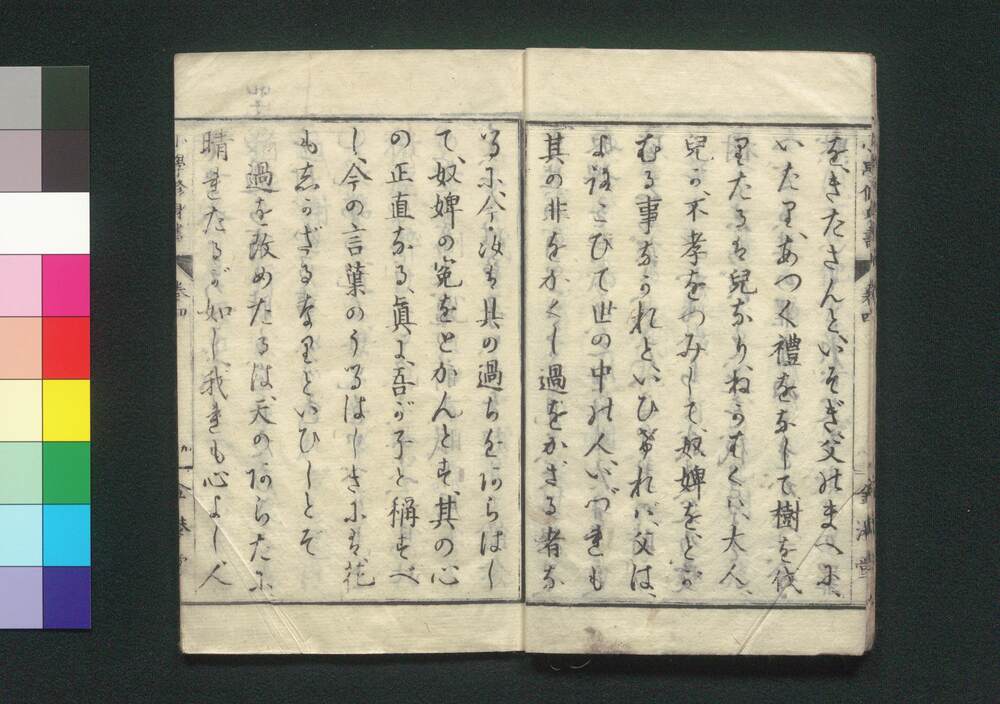 を、きたさんと、いそぎ、父のまへに、
いたり、あつく禮をなして、樹を伐
りたるは兒なり、ねがはくハ、大人、
兒の、不孝をつみしても、奴婢をとが
むる事なかれと、いひければ、父は、
よろこびて世の中の人、いづれも
其の非をかくし過をかざる者な
るに、今、汝は其の過ちをあらはし
て、奴婢の冤をとかんとす、其の心
の正直なる、眞に、吾が子と稱すべ
し、今の言葉のうるはしきには花
もしかざるなりといひしとぞ
過を改めたるは、天のあらたに
晴れたるが如し、我れも心よし、人
小學修身書
卷四
金港堂